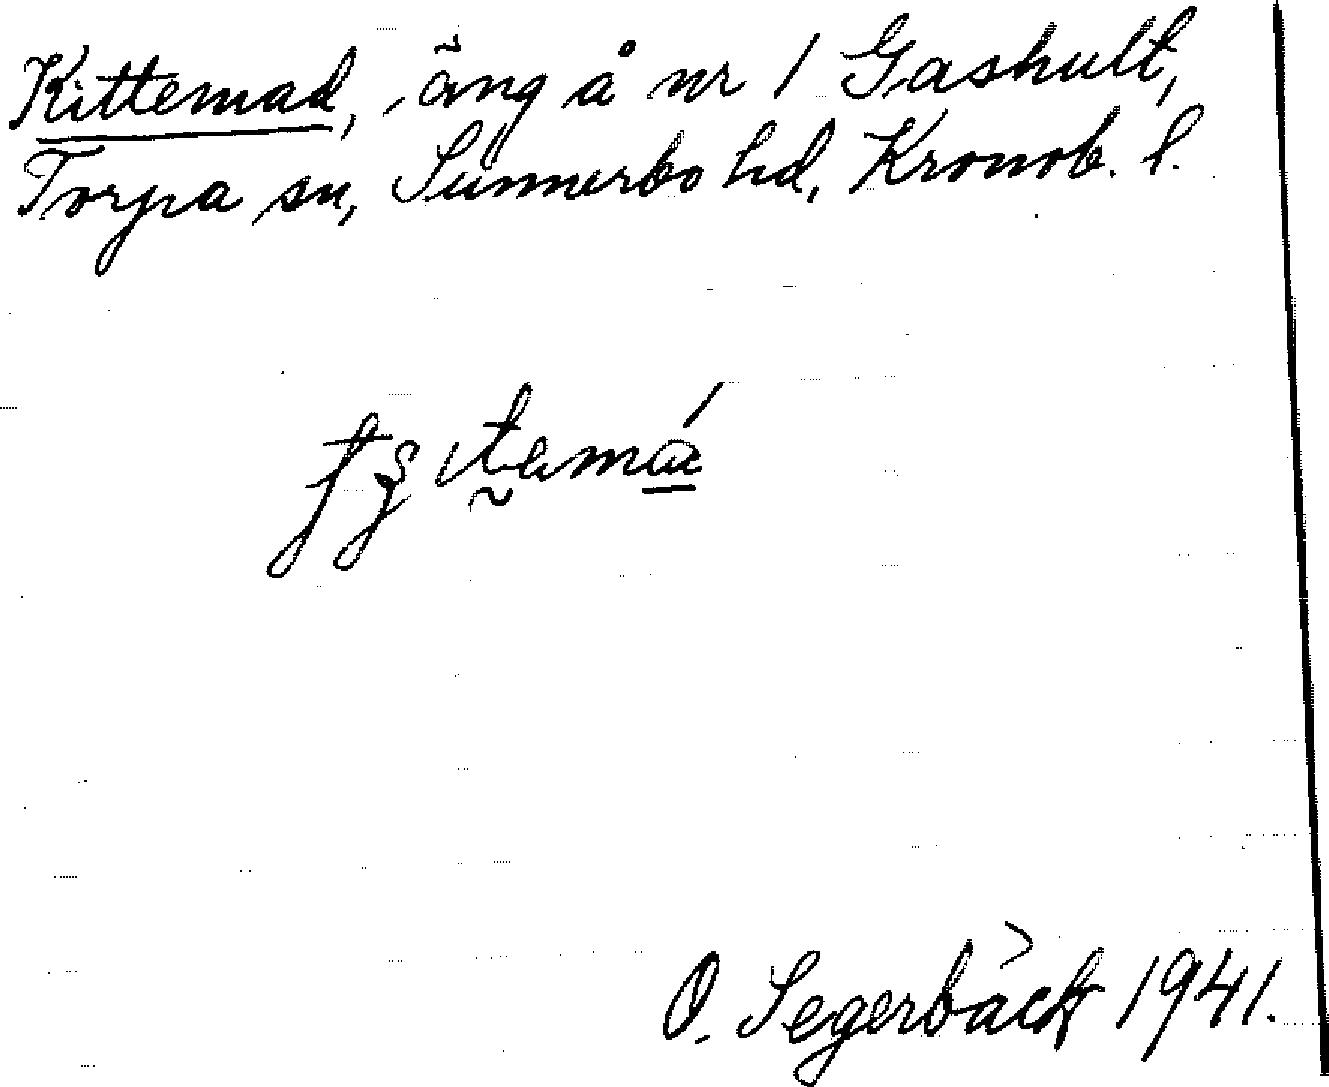 Kittemad, äng å nr 1 Gashult,
Torpa sn, Sunnerbo hd, Kronob. l.
O. Segerbäck 1941.